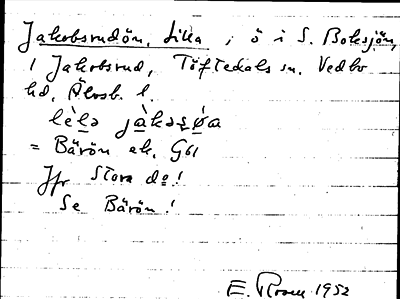 Jakobsrudön, Lilla ; ö i S. Boksjön,
1 Jakobsrud, Töftedals sn. Vedbo
hd, Älvsb. l.
lèlə jàkəsø̀a
= Bärön ek. G61
Jfr Stora do!
Se Bärön!
E. Rosen 1952